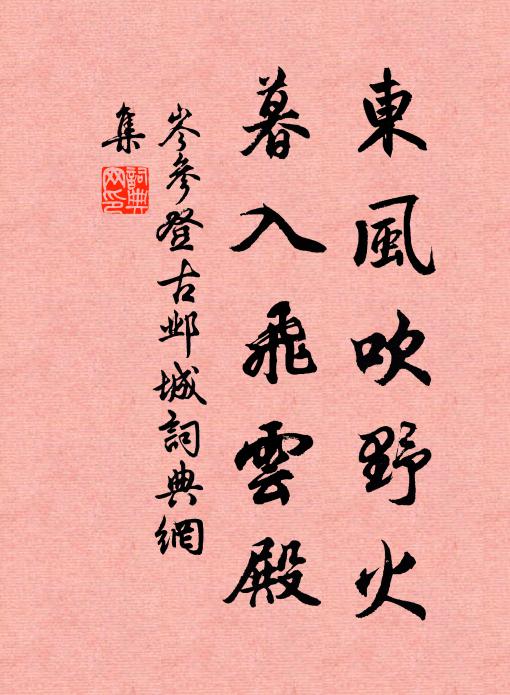 東風吹野火
暮入飛雲殿
岑參登古邺城詞典網
集
詞典
网印